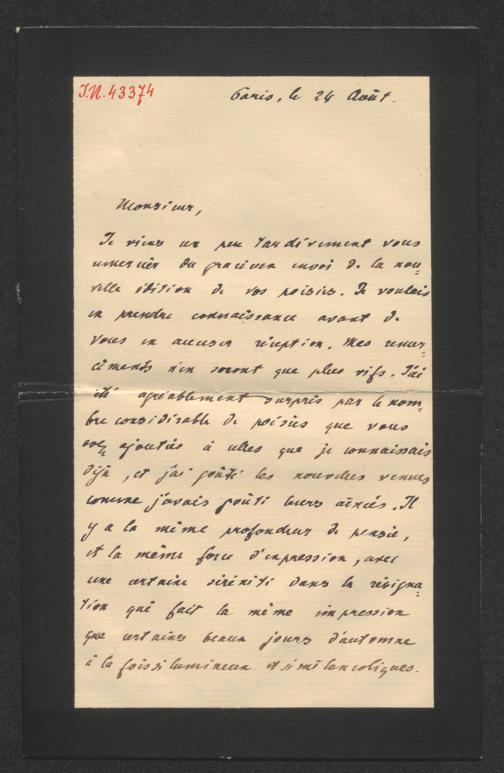 I.N. 43374
Paris, le 24 Août.
Monsieur,
Je viens un peu tardivement vous
remercier du gracieux envoi de la nou=
velle édition de vos poésies. Je voulais
en prendre connaissance avant de
vous en accuser réception. Mes remer=
ciments n'en seront que plus vifs. J'ai
été agréablement surpris par le nom=
bre considérable de poésies que vous
avez ajoutées à celles que je connaissais
déjà, et j'ai goûté les nouvelles venues
comme j'avais goûté leurs aînées. Il
y a la même profondeur de pensée,
et la même force d'expression, avec
une certaine sérénité dans la résigna=
tion qui fait la même impression
que certains beaux jours d'automne
à la fois si lumineux et si mélancoliques.